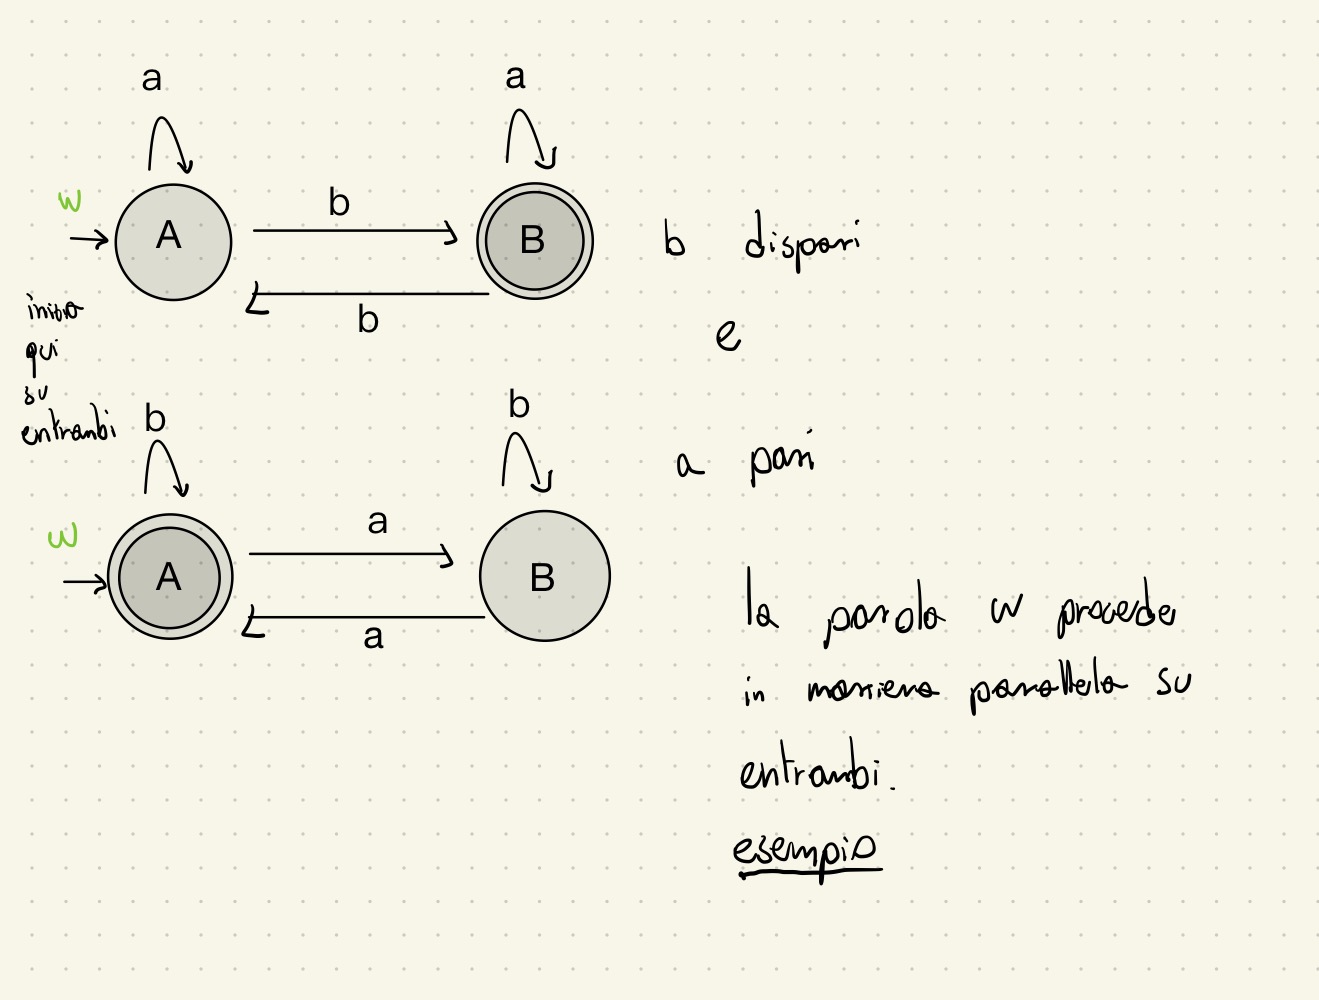 a
a
w
b
A
B
b dispari
b
inizia
qui
e
su
entrambi
b
b
a pari
w
a
A
B
a
la parola w procede
in maniera parallela su
entrambi.
esempio